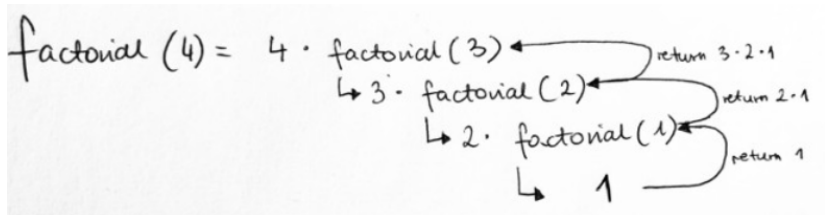 factorial (4) = 4 · factorial (3) return 3·2·1
↳ 3 · factorial (2) return 2·1
↳ 2 · factorial (1) return 1
↳ 1